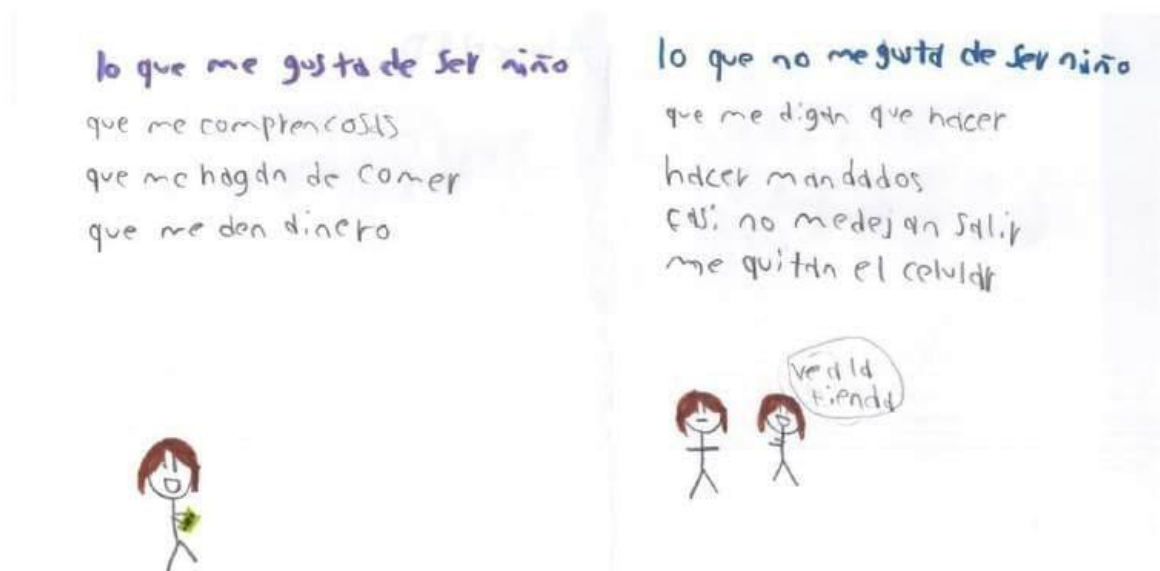 lo que me gusta de ser niño
que me comprencosas
que me hagan de comer
que me den dinero
lo que no me guta de ser niño
que me digan que hacer
hacer mandados
casi no medejan salir
me quitan el celular
ve a la
tienda